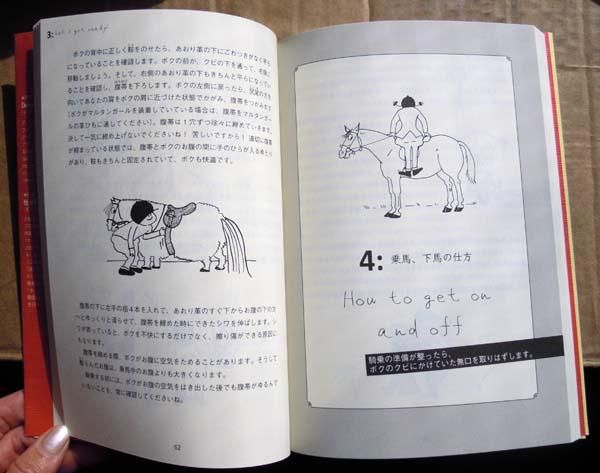 3: Let's get ready!
ボクの背中に正しく鞍をのせたら、あおり革の下にごわつきがなく平ら
になっていることを確認します。ボクの前か、クビの下を通って、右側に
移動しましょう。そして、右側のあおり革の下もきちんと平らになってい
ることを確認し、腹帯を下ろします。ボクの左側に戻ったら、
向いてあなたの肩をボクの肩に近づけた状態でかがみ、腹帯をつかみます
(ボクがマルタンガールを装着していている場合は、腹帯をマルタンガー
ルの革ひもに通してください)。腹帯は1穴ずつ徐々に締めていきます。
決して一気に締め上げないでくださいね! 苦しいですから! 適切に腹帯
が締まっている状態では、腹帯とボクのお腹の間に手のひらが入るゆとり
があり、鞍もきちんと固定されていて、ボクも快適です。
腹帯の下に右手の指4本を入れて、あおり革のすぐ下からお腹の下の方
へとゆっくりと滑らせて、腹帯を締めた時にできたシワを伸ばします。シ
ワがあっていると、ボクを不快にするだけでなく、擦り傷ができる原因に
もなります。
腹帯を締める際、ボクがお腹に空気をためることがあります。そうして
膨らんだお腹は、乗馬中のお腹よりも大きくなります。
騎乗する前には、ボクがお腹の空気をはき出した後でも腹帯がゆるんで
いないことを、常に確認してくださいね。
52
4: 乗馬、下馬の仕方
How to get on
and off
騎乗の準備が整ったら、
ボクのクビにかけていた無口を取りはずします。